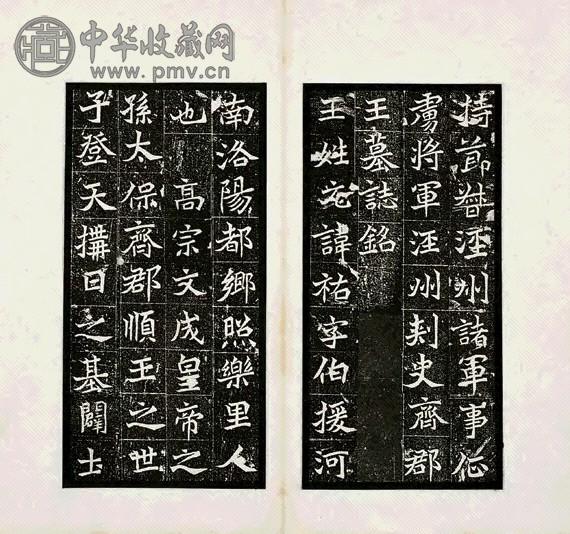 中华收藏网
www.pmv.cn
持節督涇州諸軍事征
虜將軍涇州刺史齊郡
王墓誌銘
王姓元諱祐字伯援河
南洛陽都鄉照樂里人
也 高宗文成皇帝之
孫太保齊郡順王之世
子登天構日之基闢土